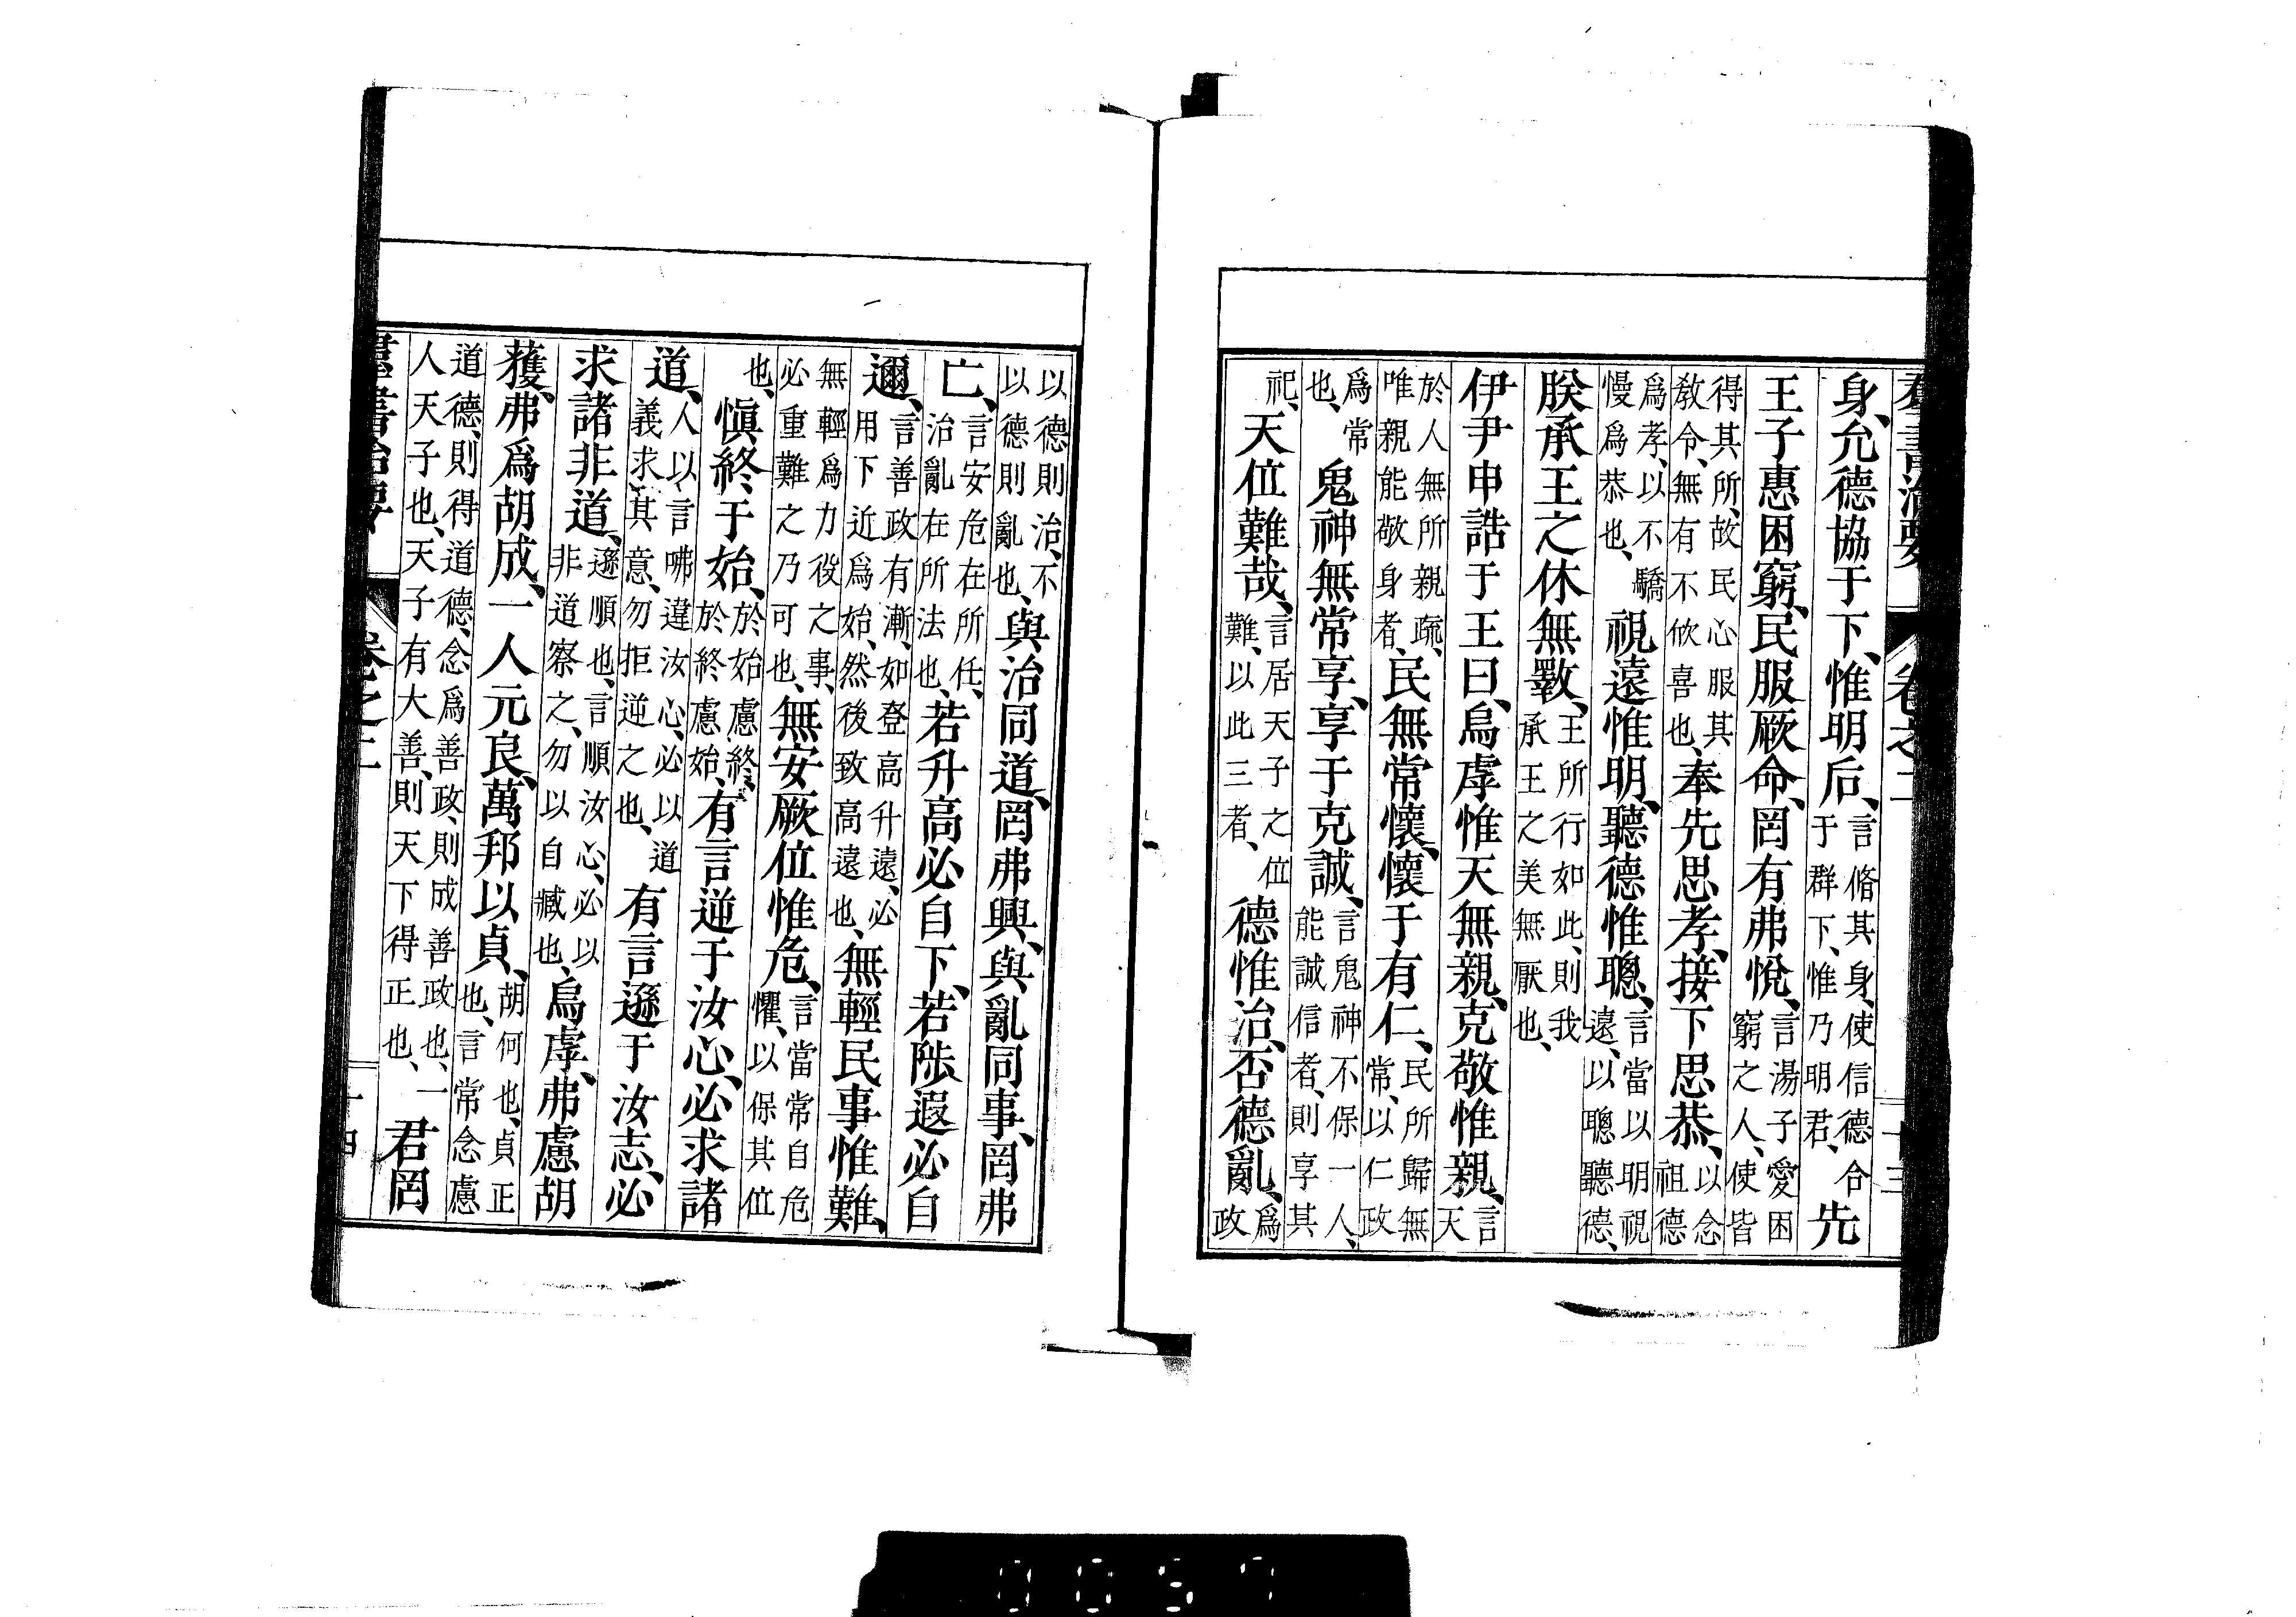 羣書治要 卷之二 十三
身、允德協于下、惟明后、言脩其身、使信德合于群下、惟乃明君、先
王子惠困窮、民服厥命、罔有弗悅、言湯子愛困窮之人、使皆
得其所、故民心服其教令、無有不欣喜也、奉先思孝、接下思恭、以念祖德
爲孝、以不驕慢爲恭也、視遠惟明、聽德惟聰、言當以明視遠、以聰聽德、
朕承王之休無斁、王所行如此、則我承王之美無厭也、
伊尹申誥于王曰、烏虖惟天無親、克敬惟親、言天
於人無所親疏、唯親能敬身者、民無常懷、懷于有仁、民所歸無常、以仁政
爲常也、鬼神無常享、享于克誠、言鬼神不保一人、能誠信者、則享其
祀、天位難哉、言居天子之位難、以此三者、德惟治、否德亂、爲政
以德則治、不以德則亂也、與治同道、罔弗興、與亂同事、罔弗
亡、言安危在所任、治亂在所法也、若升高必自下、若陟遐必自
邇、言善政有漸、如登高升遠、必用下近爲始、然後致高遠也、無輕民事惟難、
無輕爲力役之事、必重難之乃可也、無安厥位惟危、言當常自危懼、以保其位
也、愼終于始、於始慮終、於終慮始、有言逆于汝心、必求諸
道、人以言咈違汝心、必以道義求其意、勿拒逆之也、有言遜于汝志、必
求諸非道、遜順也、言順汝心、必以非道察之、勿以自臧也、烏虖、弗慮胡
獲、弗爲胡成、一人元良、萬邦以貞、胡何也、貞正也、言常念慮
道德、則得道德、念爲善政、則成善政也、一人天子也、天子有大善、則天下得正也、君罔
羣書治要 卷之二 十四